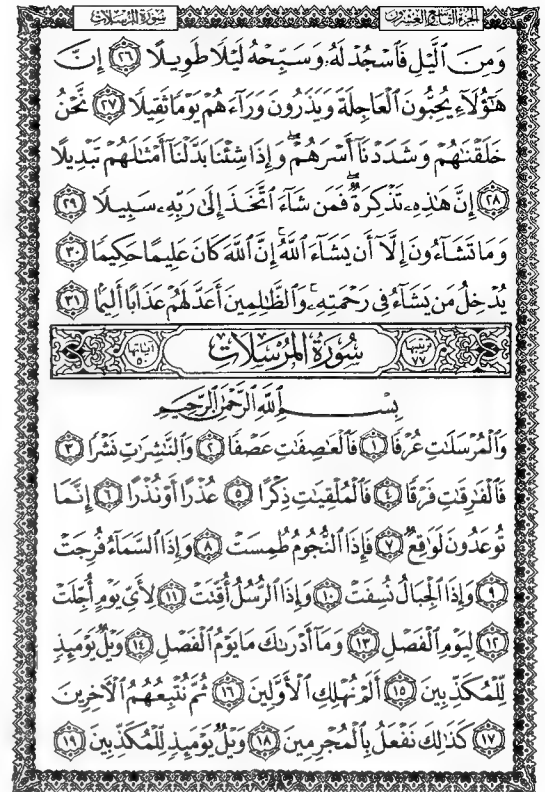 الجزء التاسع والعشرون سورة المرسلات
وَمِنَ ٱلَّيۡلِ فَٱسۡجُدۡ لَهُۥ وَسَبِّحۡهُ لَيۡلٗا طَوِيلًا ٢٦ إِنَّ
هَٰٓؤُلَآءِ يُحِبُّونَ ٱلۡعَاجِلَةَ وَيَذَرُونَ وَرَآءَهُمۡ يَوۡمٗا ثَقِيلٗا ٢٧ نَّحۡنُ
خَلَقۡنَٰهُمۡ وَشَدَدۡنَآ أَسۡرَهُمۡۖ وَإِذَا شِئۡنَا بَدَّلۡنَآ أَمۡثَٰلَهُمۡ تَبۡدِيلًا
٢٨ إِنَّ هَٰذِهِۦ تَذۡكِرَةٞۖ فَمَن شَآءَ ٱتَّخَذَ إِلَىٰ رَبِّهِۦ سَبِيلٗا ٢٩
وَمَا تَشَآءُونَ إِلَّآ أَن يَشَآءَ ٱللَّهُۚ إِنَّ ٱللَّهَ كَانَ عَلِيمًا حَكِيمٗا ٣٠
يُدۡخِلُ مَن يَشَآءُ فِي رَحۡمَتِهِۦۚ وَٱلظَّٰلِمِينَ أَعَدَّ لَهُمۡ عَذَابًا أَلِيمَۢا ٣١
ترتيبها ٧٧ سُورَةُ المُرْسَلَات آياتها ٥٠
بِسۡمِ ٱللَّهِ ٱلرَّحۡمَٰنِ ٱلرَّحِيمِ
وَٱلۡمُرۡسَلَٰتِ عُرۡفٗا ١ فَٱلۡعَٰصِفَٰتِ عَصۡفٗا ٢ وَٱلنَّٰشِرَٰتِ نَشۡرٗا ٣
فَٱلۡفَٰرِقَٰتِ فَرۡقٗا ٤ فَٱلۡمُلۡقِيَٰتِ ذِكۡرًا ٥ عُذۡرًا أَوۡ نُذۡرًا ٦ إِنَّمَا
تُوعَدُونَ لَوَٰقِعٞ ٧ فَإِذَا ٱلنُّجُومُ طُمِسَتۡ ٨ وَإِذَا ٱلسَّمَآءُ فُرِجَتۡ
٩ وَإِذَا ٱلۡجِبَالُ نُسِفَتۡ ١٠ وَإِذَا ٱلرُّسُلُ أُقِّتَتۡ ١١ لِأَيِّ يَوۡمٍ أُجِّلَتۡ
١٢ لِيَوۡمِ ٱلۡفَصۡلِ ١٣ وَمَآ أَدۡرَىٰكَ مَا يَوۡمُ ٱلۡفَصۡلِ ١٤ وَيۡلٞ يَوۡمَئِذٖ
لِّلۡمُكَذِّبِينَ ١٥ أَلَمۡ نُهۡلِكِ ٱلۡأَوَّلِينَ ١٦ ثُمَّ نُتۡبِعُهُمُ ٱلۡأٓخِرِينَ
١٧ كَذَٰلِكَ نَفۡعَلُ بِٱلۡمُجۡرِمِينَ ١٨ وَيۡلٞ يَوۡمَئِذٖ لِّلۡمُكَذِّبِينَ ١٩